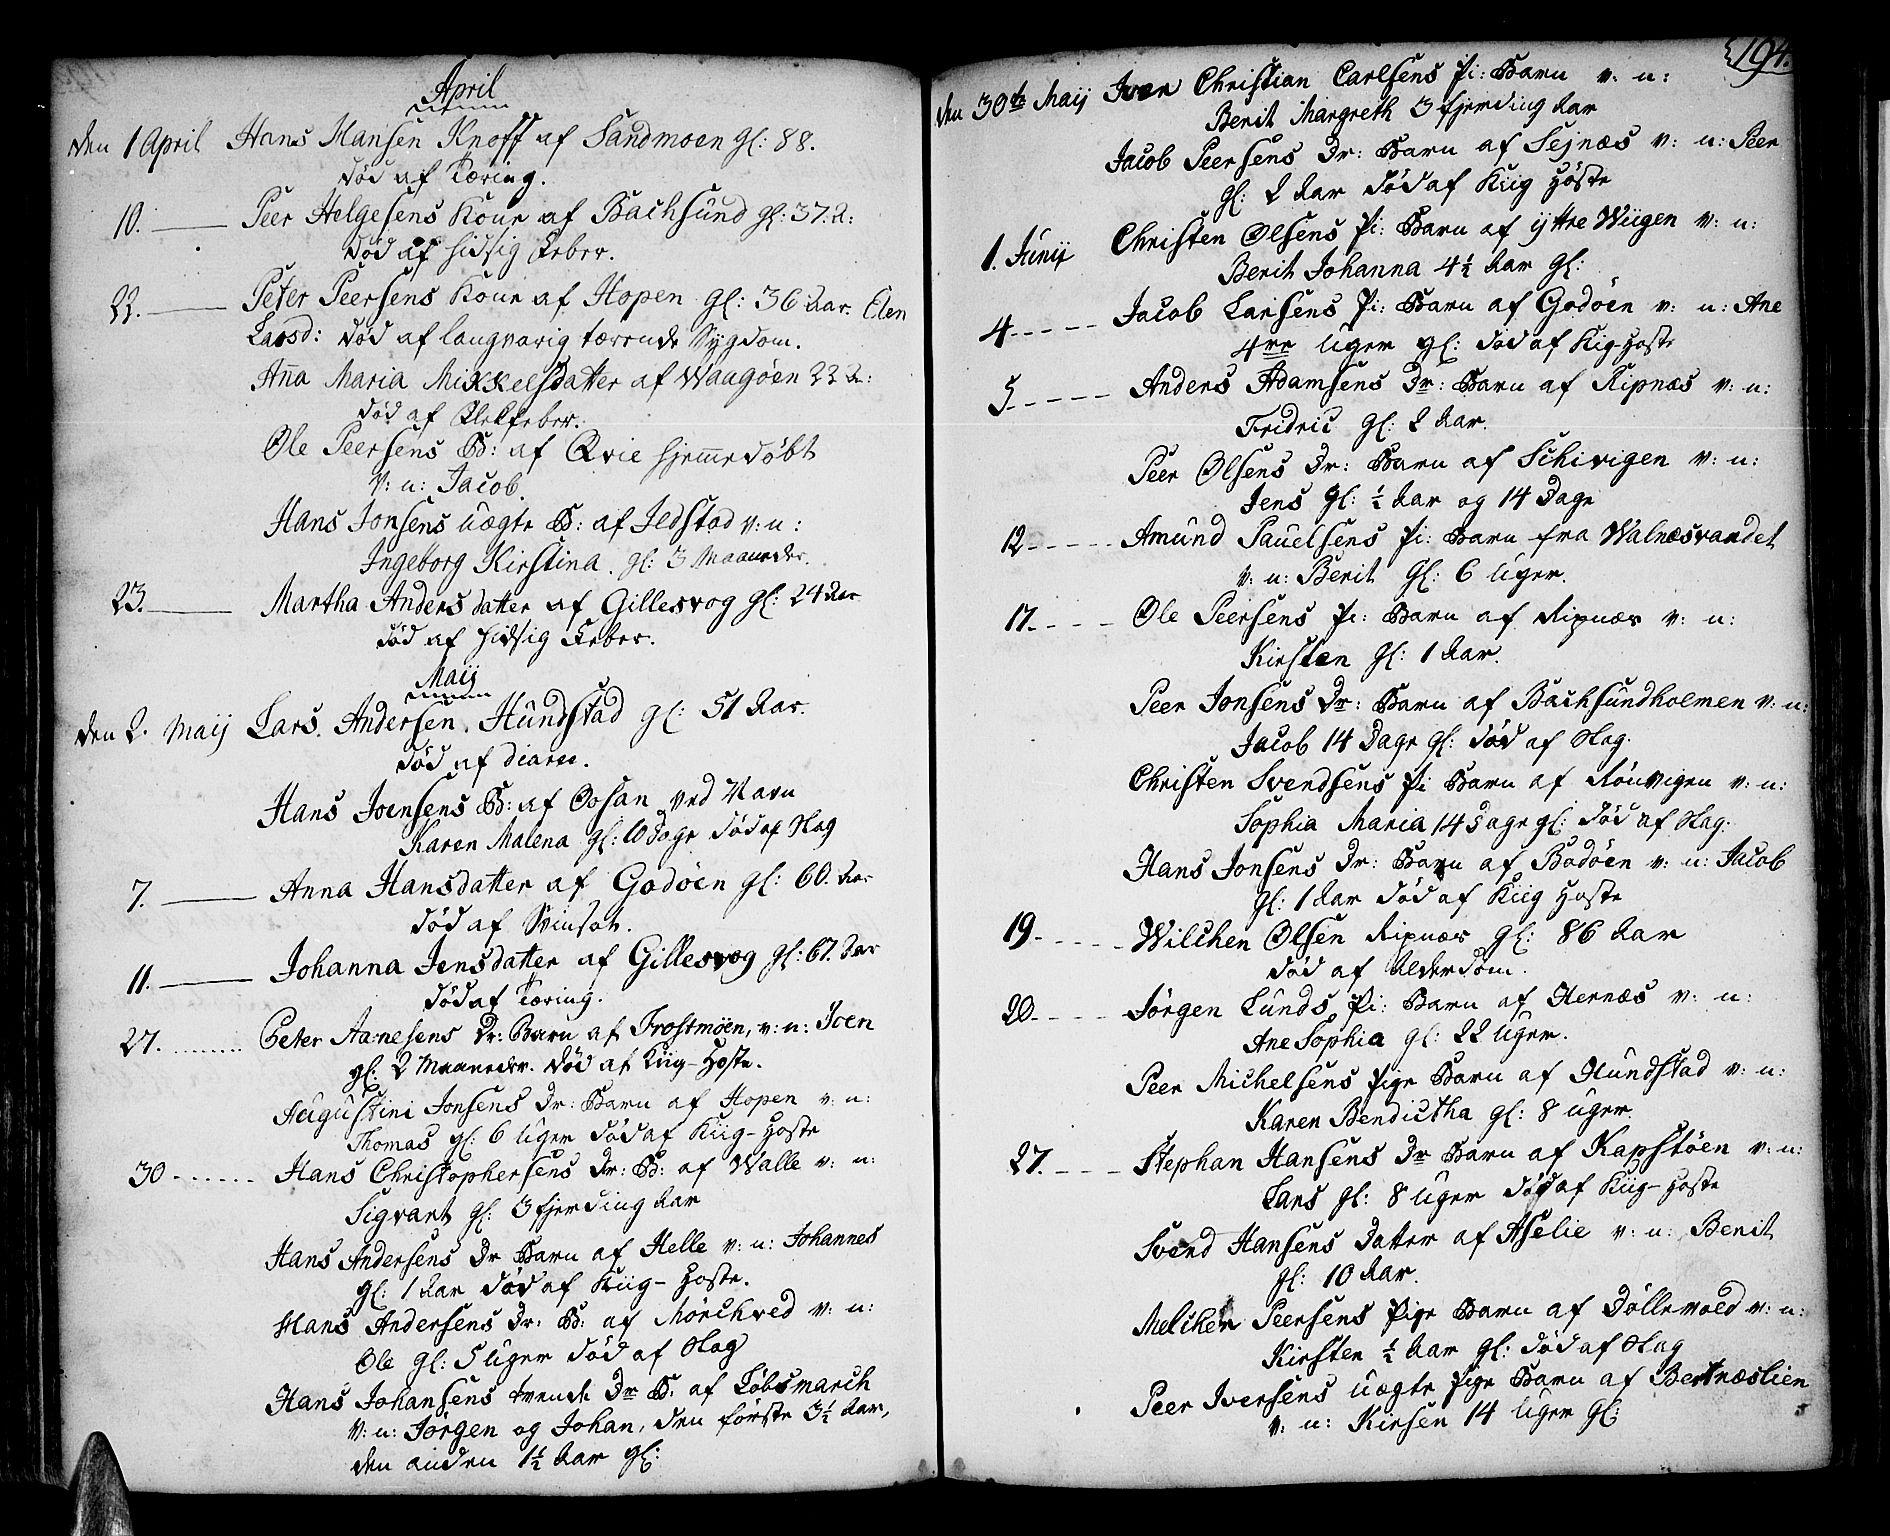 April
den 1 April Hans Hansen Knoff af Sandmoen gl: 88.
død af Tæring.
10. Peer Helgesens Kone af Bachsund gl: 37. A:
død af hidsig Feber.
22. Peter Peersens Kone af Hopen gl: 36 Aar. Elen
Larsd: død af langvarig tærende Sygdom.
Anna Maria Mikkelsdatter af Waagøen 22 A:
død af Flekfeber.
Ole Peersens B: af Qvie hjemmedøbt
v: n: Jacob.
Hans Jonsens uægte B: af Jedstad v: n:
Ingeborg Kirstina. gl: 3 Maaneder.
23. Martha Andersdatter af Gillesvog gl: 24 Aar
død af hidsig Feber.
Maij
den 2. Maij Lars Andersen Hundstad gl: 51 Aar.
død af diaree.
Hans Joensens B: af Oosan ved Navn
Karen Malena gl: 10 Dage død af Slag
7. Anna Hansdatter af Godøen gl: 60. Aar
død af
11. Johanna Jensdatter af Gillesvog gl: 67. Aar
død af Tæring.
27. Peter Aarnesens Dr: Barn af Trostmoen, v: n: Iven
gl: 2 Maaneder. død af Kiig-Hoste.
Augustini Jonsens Dr: Barn af Hopen v: n:
Thomas gl: 6 Uger død af Kiig-Hoste
30 Hans Christophersens Dr: B: af Walle v: n:
Sigvart gl: 3 fjerding Aar
Hans Andersens Dr Barn af Helle v: n: Johannes
gl: 1 Aar død af Kiig-Hoste.
Hans Andersens Dr: B: af Mörchved v: n:
Ole gl: 5 Uger død af Slag
Hans Johansens tvende Dr B: af Löbsmarch
v: n: Jörgen og Johan, den første 3½ Aar,
den anden 1½ Aar gl:
194.
den 30te Maij Iver Christian Carlsens Pi: Barn v: n:
Berit Margreth 3 fjerding Aar
Jacob Peersens Dr: Barn af Sejnæs v: n: Peer
gl: 2 Aar død af Kiig Høste
1. Junij Christen Olsens Pi: Barn af ijttre Wiigen v: n:
Berit Johanna 4½ Aar gl:
4 Jacob Larsens Pi: Barn af Godöen v: n: Ane
4re Uger gl: død af Kiig-Hoste
5 Anders Adamsens Dr: Barn af Ripnæs v: n:
Fridric gl: 2 Aar.
Peer Olsens Dr: Barn af Schivigen v: n:
Jens gl: ½ Aar og 14 Dage
12 Amund Pauelsens Pi: Barn fra Walnæsvandet
v: n: Berit gl: 6 Uger.
17. Ole Peersens Pi: Barn af Ripnæs v: n:
Kirsten gl: 1 Aar.
Peer Jonsens Dr: Barn af Bachsundholmen v: n:
Jacob 14 Dage gl: død af Slag.
Christen Svendsens Pi Barn af Rönvigen v: n:
Sophia Maria 14 Dage gl: død af Slag.
Hans Jonsens Dr: Barn af Bodöen v: n: Jacob
gl: 1 Aar død af Kiig Hoste
19 Wilchen Olsen Ripnæs gl: 86 Aar
død af Alderdom.
20 Jörgen Lunds Pi: Barn af Hernæs v: n:
Ane Sophia gl: 22 Uger.
Peer Michelsens Pige Barn af Hundstad v: n:
Karen Bendictha gl: 8 Uger.
27. Stephan Hansens Dr Barn af Kapstöen v: n:
Lars gl: 8 Uger død af Kiig-Hoste
Svend Hansens Datter af Aselie v: n: Berit
gl: 10 Aar.
Melcher Peersens Pige Barn af Döllevoed v: n:
Kirsten ½ Aar gl: død af Slag
Peer Iversens uægte Pige Barn af Bertnæslien
v: n: Kirsen 14 Uger gl: